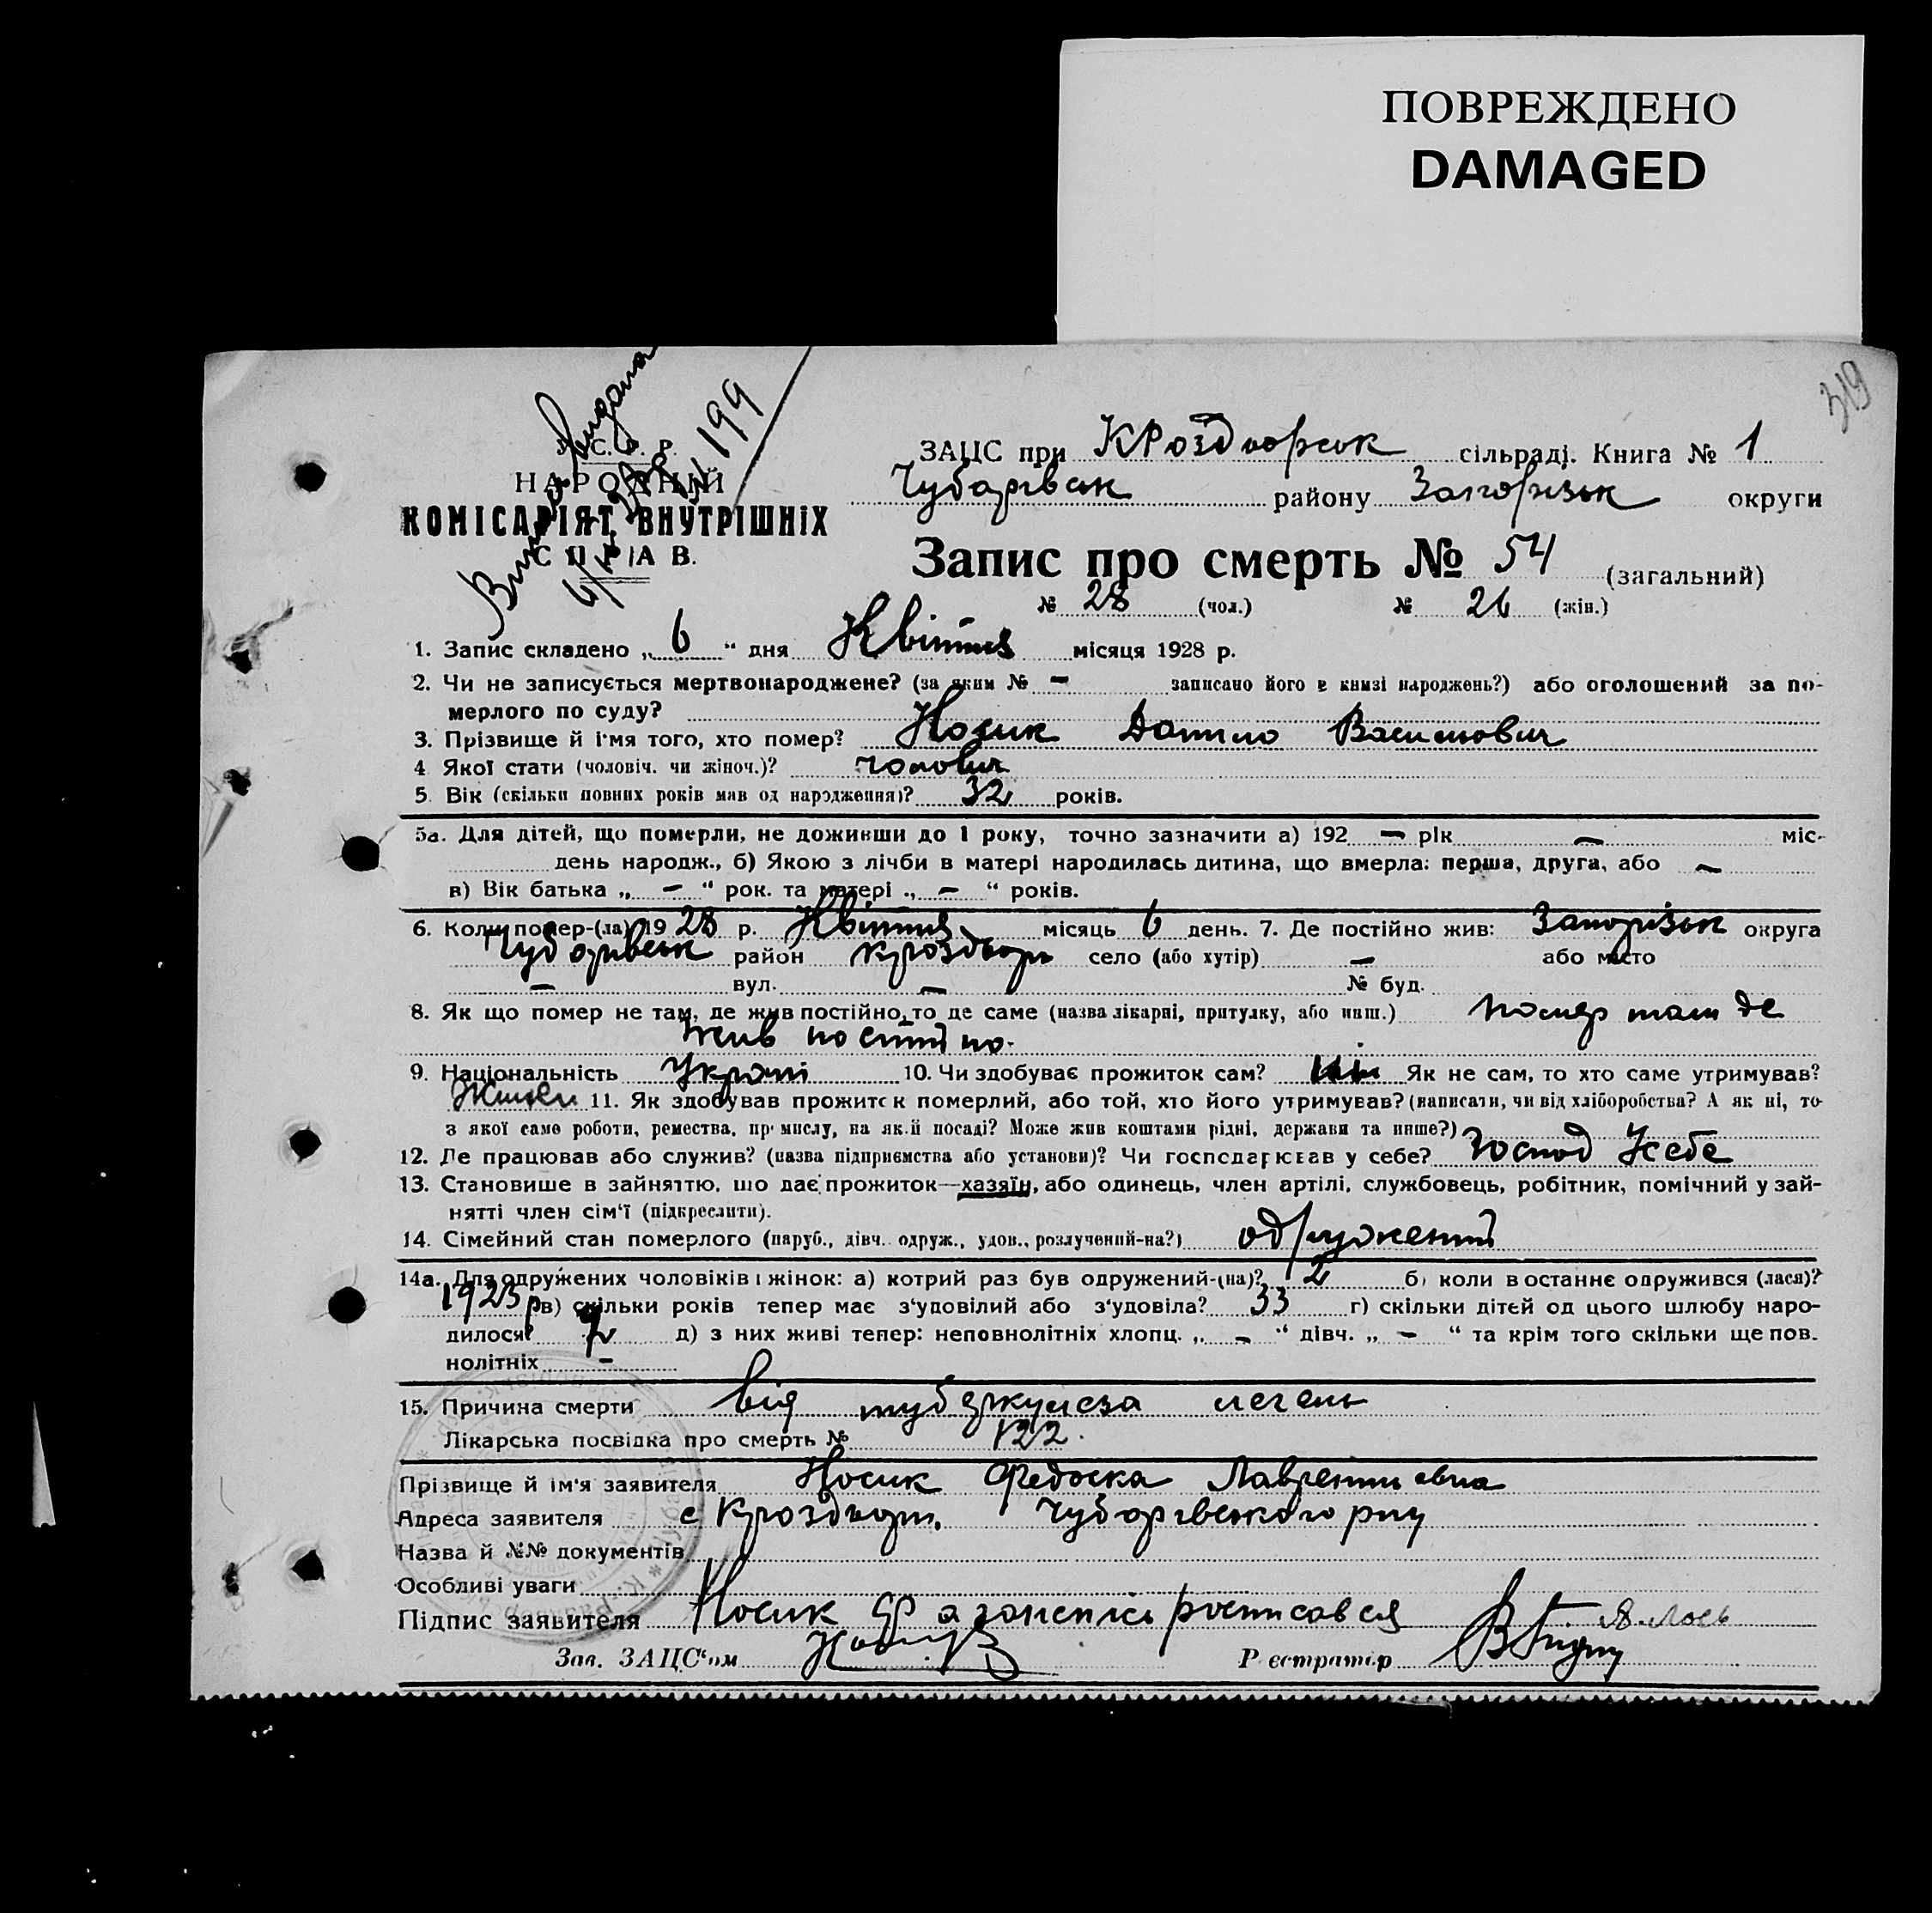 ПОВРЕЖДЕНО
DAMAGED
319
199
У. С. Р. Р.
НАРОДНІЙ
КОМІСАРІЯТ ВНУТРІШНІХ
СПРАВ.
ЗАЦС при КРоздорськ сільраді. Книга № 1
Чубарівськ району Запорізьк округи
Запис про смерть № 54 (загальний)
№ 28 (чол.) № 26 (жін.)
1. Запис складено „ 6 “ дня Квітня місяця 1928 р.
2. Чи не записується мертвонароджене? (за яким № - записано його в книзі народжень?) або оголошений за по-
мерлого по суду?
3. Прізвище й ім'я того, хто помер? Носик Данило Васильович
4 Якої стати (чоловіч. чи жіноч.)? чоловіч
5. Вік (скільки повних років мав од народження)? 32 років.
5а. Для дітей, що померли, не доживши до 1 року, точно зазначити а) 192 - рік - міс-
день народж., б) Якою з лічби в матері народилась дитина, що вмерла: перша, друга, або -
в) Вік батька „ - “ рок. та матері „ - “ років.
6. Коли помер-(ла) 1928 р. Квітня місяць 6 день. 7. Де постійно жив: Запорізьк округа
Чубарівськ район Кроздори село (або хутір) - або місто
- вул. - № буд.
8. Як що помер не там, де жив постійно, то де саме (назва лікарні, притулку, або инш.) помер там де
жив постійно.
9. Національність Україн 10. Чи здобуває прожиток сам? Як не сам, то хто саме утримував?
11. Як здобував прожиток померлий, або той, хто його утримував? (написати, чи від хліборобства? А як ні, то
з якої саме роботи, ремества, промислу, на якій посаді? Може жив коштами рідні, держави та инше?)
12. Де працював або служив? (назва підприємства або установи)? Чи господарював у себе? Господ Усебе
13. Становище в зайняттю, що дає прожиток—хазяїн, або одинець, член артілі, службовець, робітник, помічний у зай-
нятті член сім'ї (підкреслити).
14. Сімейний стан померлого (паруб., дівч. одруж., удов., розлучений-на?) одружений
14а. Для одружених чоловіків і жінок: а) котрий раз був одружений-(на)? 2 б) коли востаннє одружився (лася)?
1923 р в) скільки років тепер має з'удовілий або з'удовіла? 33 г) скільки дітей од цього шлюбу наро-
дилося? д) з них живі тепер: неповнолітніх хлопц. „ - “ дівч. „ - “ та крім того скільки ще пов.
нолітніх -
15. Причина смерти від туберкульоза легень
Лікарська посвідка про смерть № 122.
Прізвище й ім'я заявителя Носик Федоска Лаврентієвна
Адреса заявителя с Кроздори, Чубарівського рну
Назва й №№ документів
Особливі уваги
Підпис заявителя Носик
Зав. ЗАЦС'ом
Реєстратор